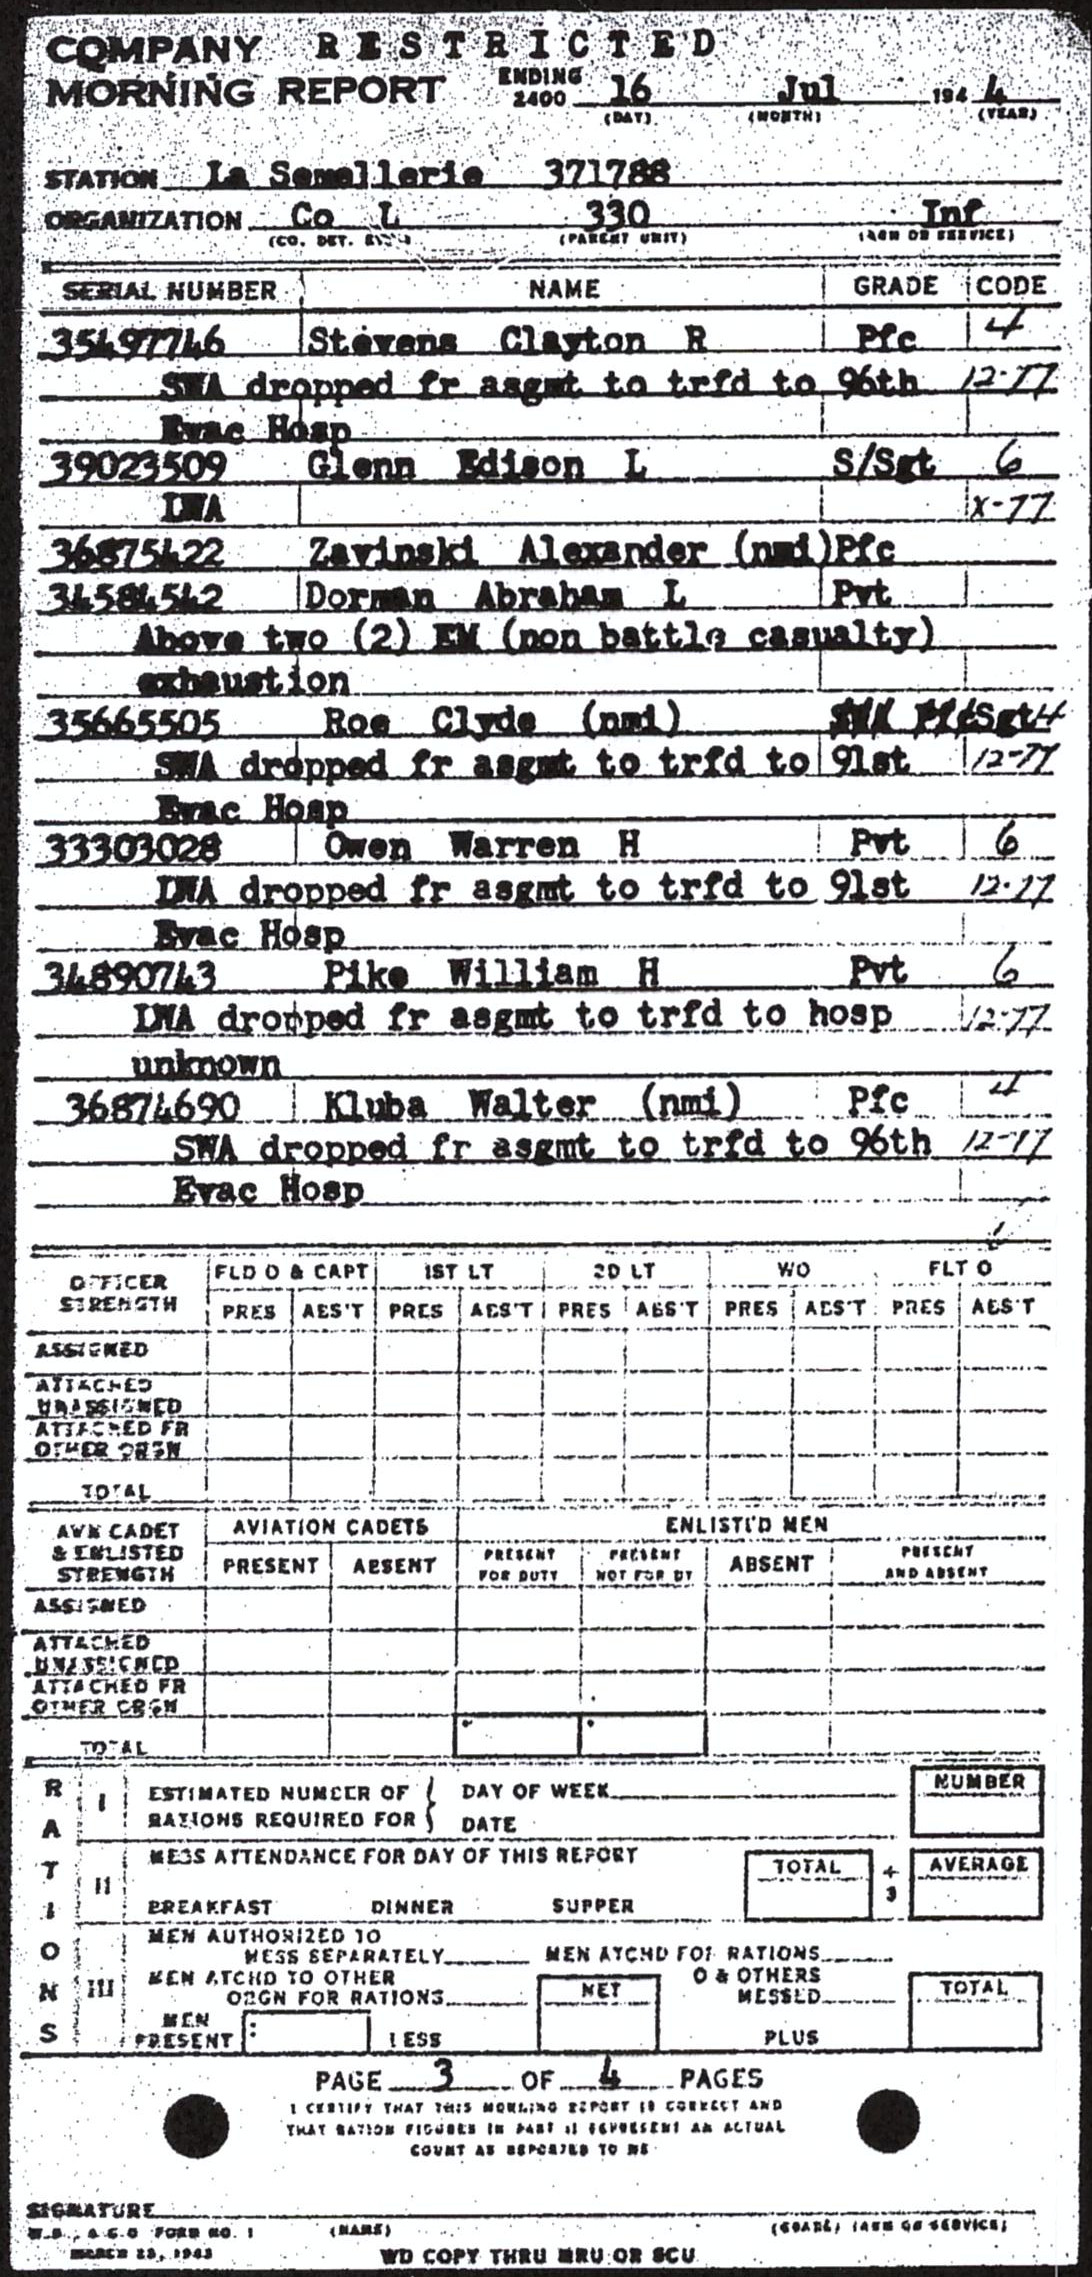 COMPANY RESTRICTED
MORNING REPORT ENDING 2400 16 Jul 1944
(DAY) (MONTH) (YEAR)
STATION La Semellerie 371788
ORGANIZATION Co L 330 Inf
(PARENT UNIT) (ARM OR SERVICE)
SERIAL NUMBER NAME GRADE CODE
35497746 Stevens Clayton R Pfc 4
SWA dropped fr asgmt to trfd to 96th 12-77
Evac Hosp
39023509 Glenn Edison L S/Sgt 6
LWA X-77
36875422 Zavinski Alexander (nmi) Pfc
34584542 Dorman Abraham L Pvt
Above two (2) EM (non battle casualty)
exhaustion
35665505 Roe Clyde (nmi) Sgt 4
SWA dropped fr asgmt to trfd to 91st 12-77
Evac Hosp
33303028 Owen Warren H Pvt 6
LWA dropped fr asgmt to trfd to 91st 12-77
Evac Hosp
34890743 Pike William H Pvt 6
LWA dropped fr asgmt to trfd to hosp 12-77
unknown
36874690 Kluba Walter (nmi) Pfc 4
SWA dropped fr asgmt to trfd to 96th 12-77
Evac Hosp
OFFICER STRENGTH FLD O & CAPT 1ST LT 2D LT WO FLT O
PRES ABS'T PRES ABS'T PRES ABS'T PRES ABS'T PRES ABS'T
ASSIGNED
ATTACHED
UNASSIGNED
ATTACHED FR
OTHER ORGN
TOTAL
AVN CADET & ENLISTED STRENGTH AVIATION CADETS ENLISTED MEN
PRESENT ABSENT PRESENT FOR DUTY PRESENT NOT FOR DY ABSENT PRESENT AND ABSENT
ASSIGNED
ATTACHED
UNASSIGNED
ATTACHED FR
OTHER ORGN
TOTAL
RATIONS
I ESTIMATED NUMBER OF DAY OF WEEK NUMBER
RATIONS REQUIRED FOR DATE
II MESS ATTENDANCE FOR DAY OF THIS REPORT TOTAL ÷ 3 AVERAGE
BREAKFAST DINNER SUPPER
III MEN AUTHORIZED TO
MESS SEPARATELY MEN ATCHD FOR RATIONS
MEN ATCHD TO OTHER NET O & OTHERS TOTAL
ORGN FOR RATIONS MESSED
MEN PRESENT LESS PLUS
PAGE 3 OF 4 PAGES
I CERTIFY THAT THIS MORNING REPORT IS CORRECT AND
THAT RATION FIGURES IN PART II REPRESENT AN ACTUAL
COUNT AS REPORTED TO ME
SIGNATURE
W.D., A.G.O. FORM NO. 1 (NAME) (GRADE) (ARM OR SERVICE)
MARCH 23, 1943 WD COPY THRU MRU OR SCU